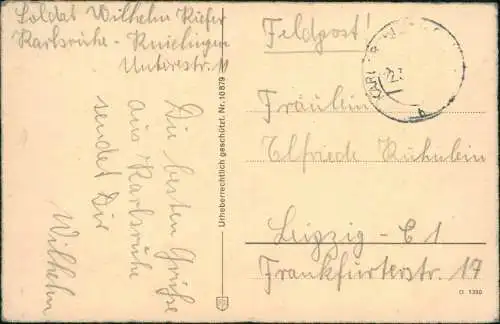 Soldat Wilhelm Kiefer
Karlsruhe - Knielingen
Unterestr. 11
Die besten Grüße
aus Karlsruhe
sendet Dir
Wilhelm
Urheberrechtlich geschützt. Nr. 10879
Feldpost!
Fräulein
Elfriede Kühnlein
Leipzig - C 1
Frankfurterstr. 17
G 1330